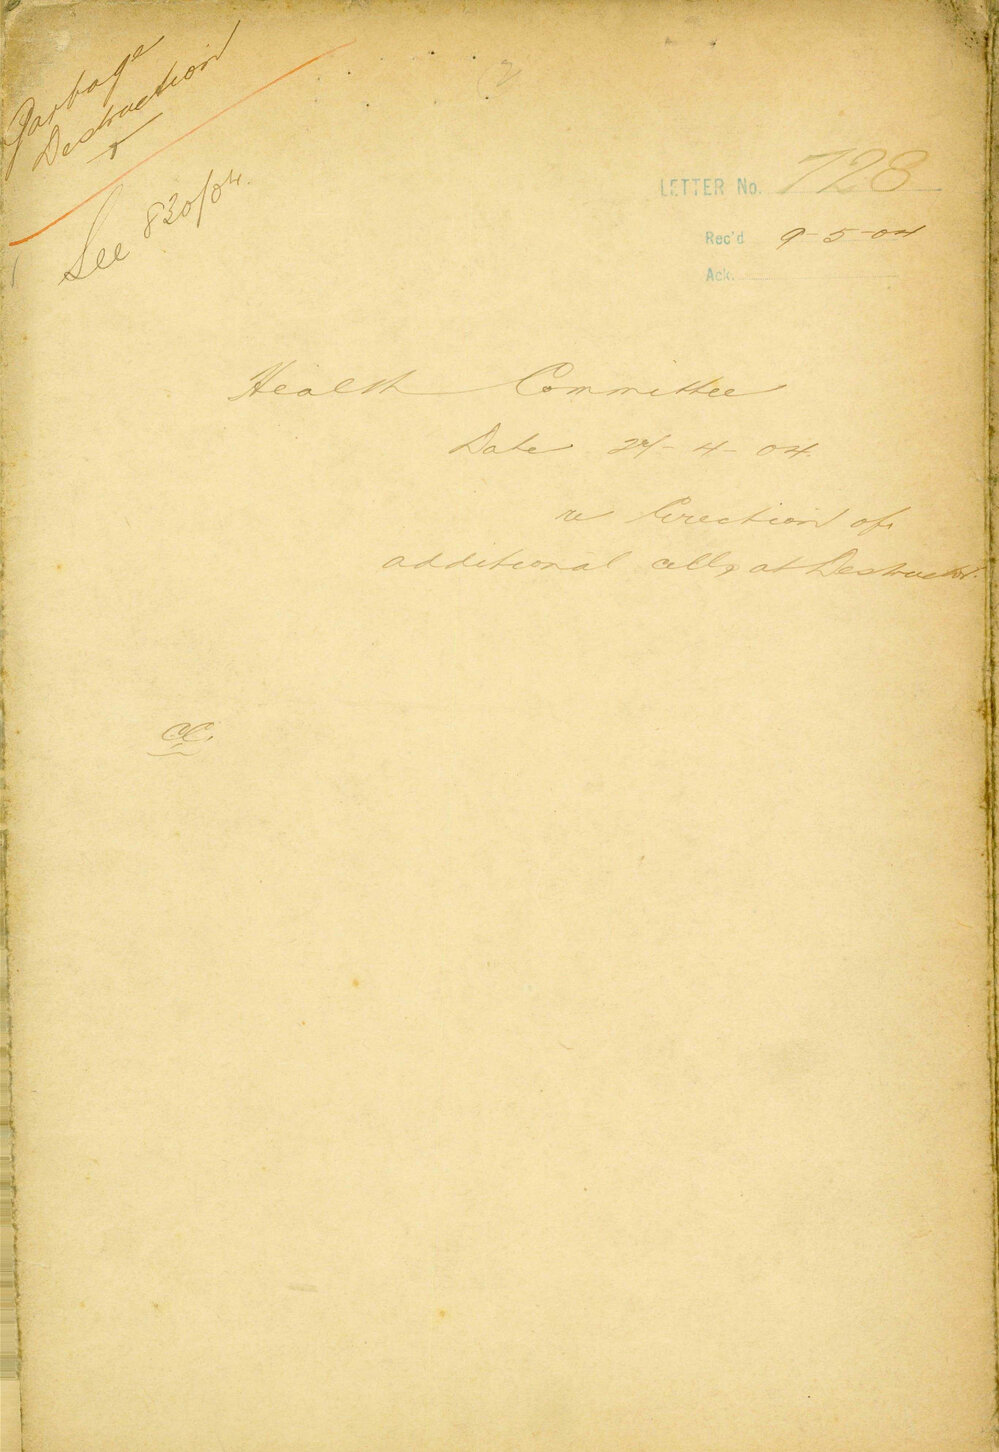 Garbage
Destruction
See 830/04.
LETTER No. 728
Rec'd 9-5-04
Ack.
Health Committee
Date -4-04
re Erection of
additional cells at Destructor.